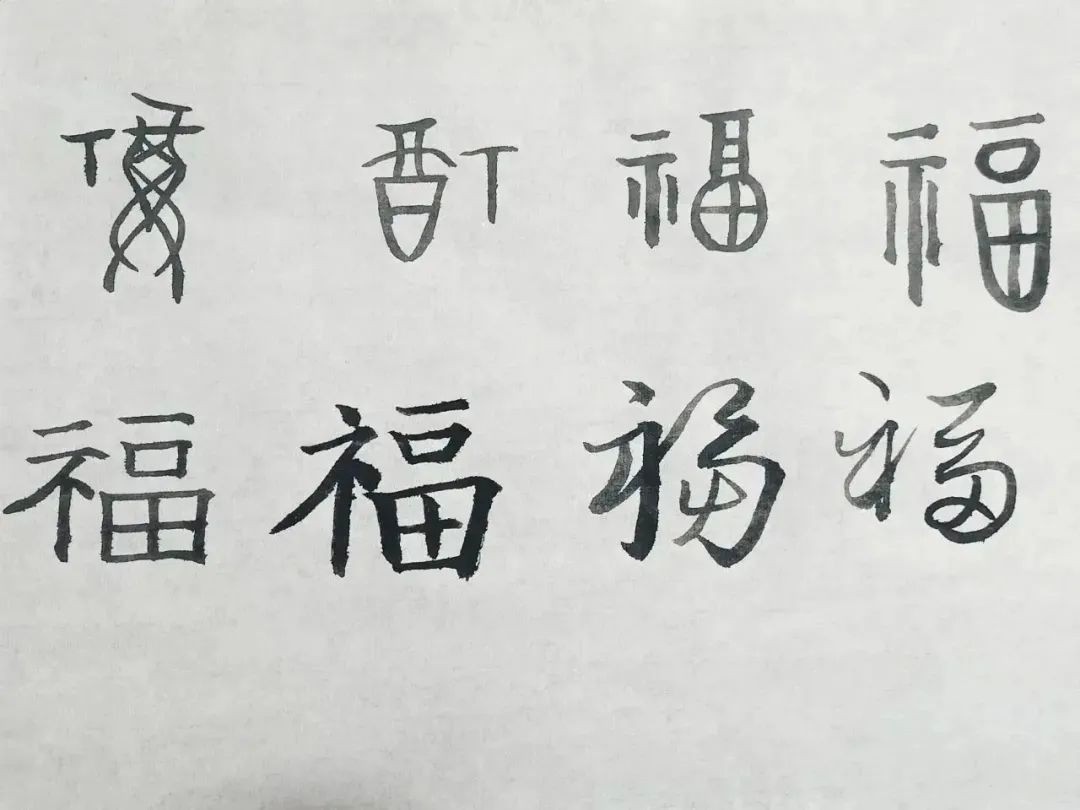 福 福 福 福
福 福 福 福